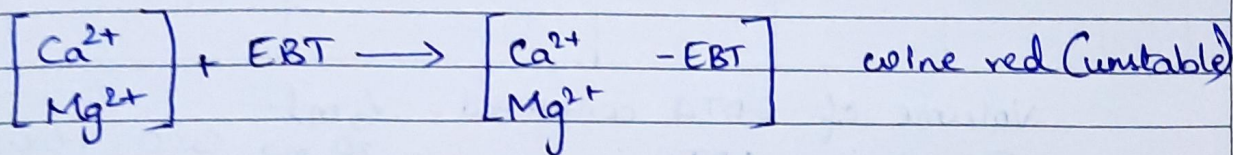 [Ca²⁺ Mg²⁺] + EBT → [Ca²⁺ Mg²⁺ - EBT] wine red (unstable)